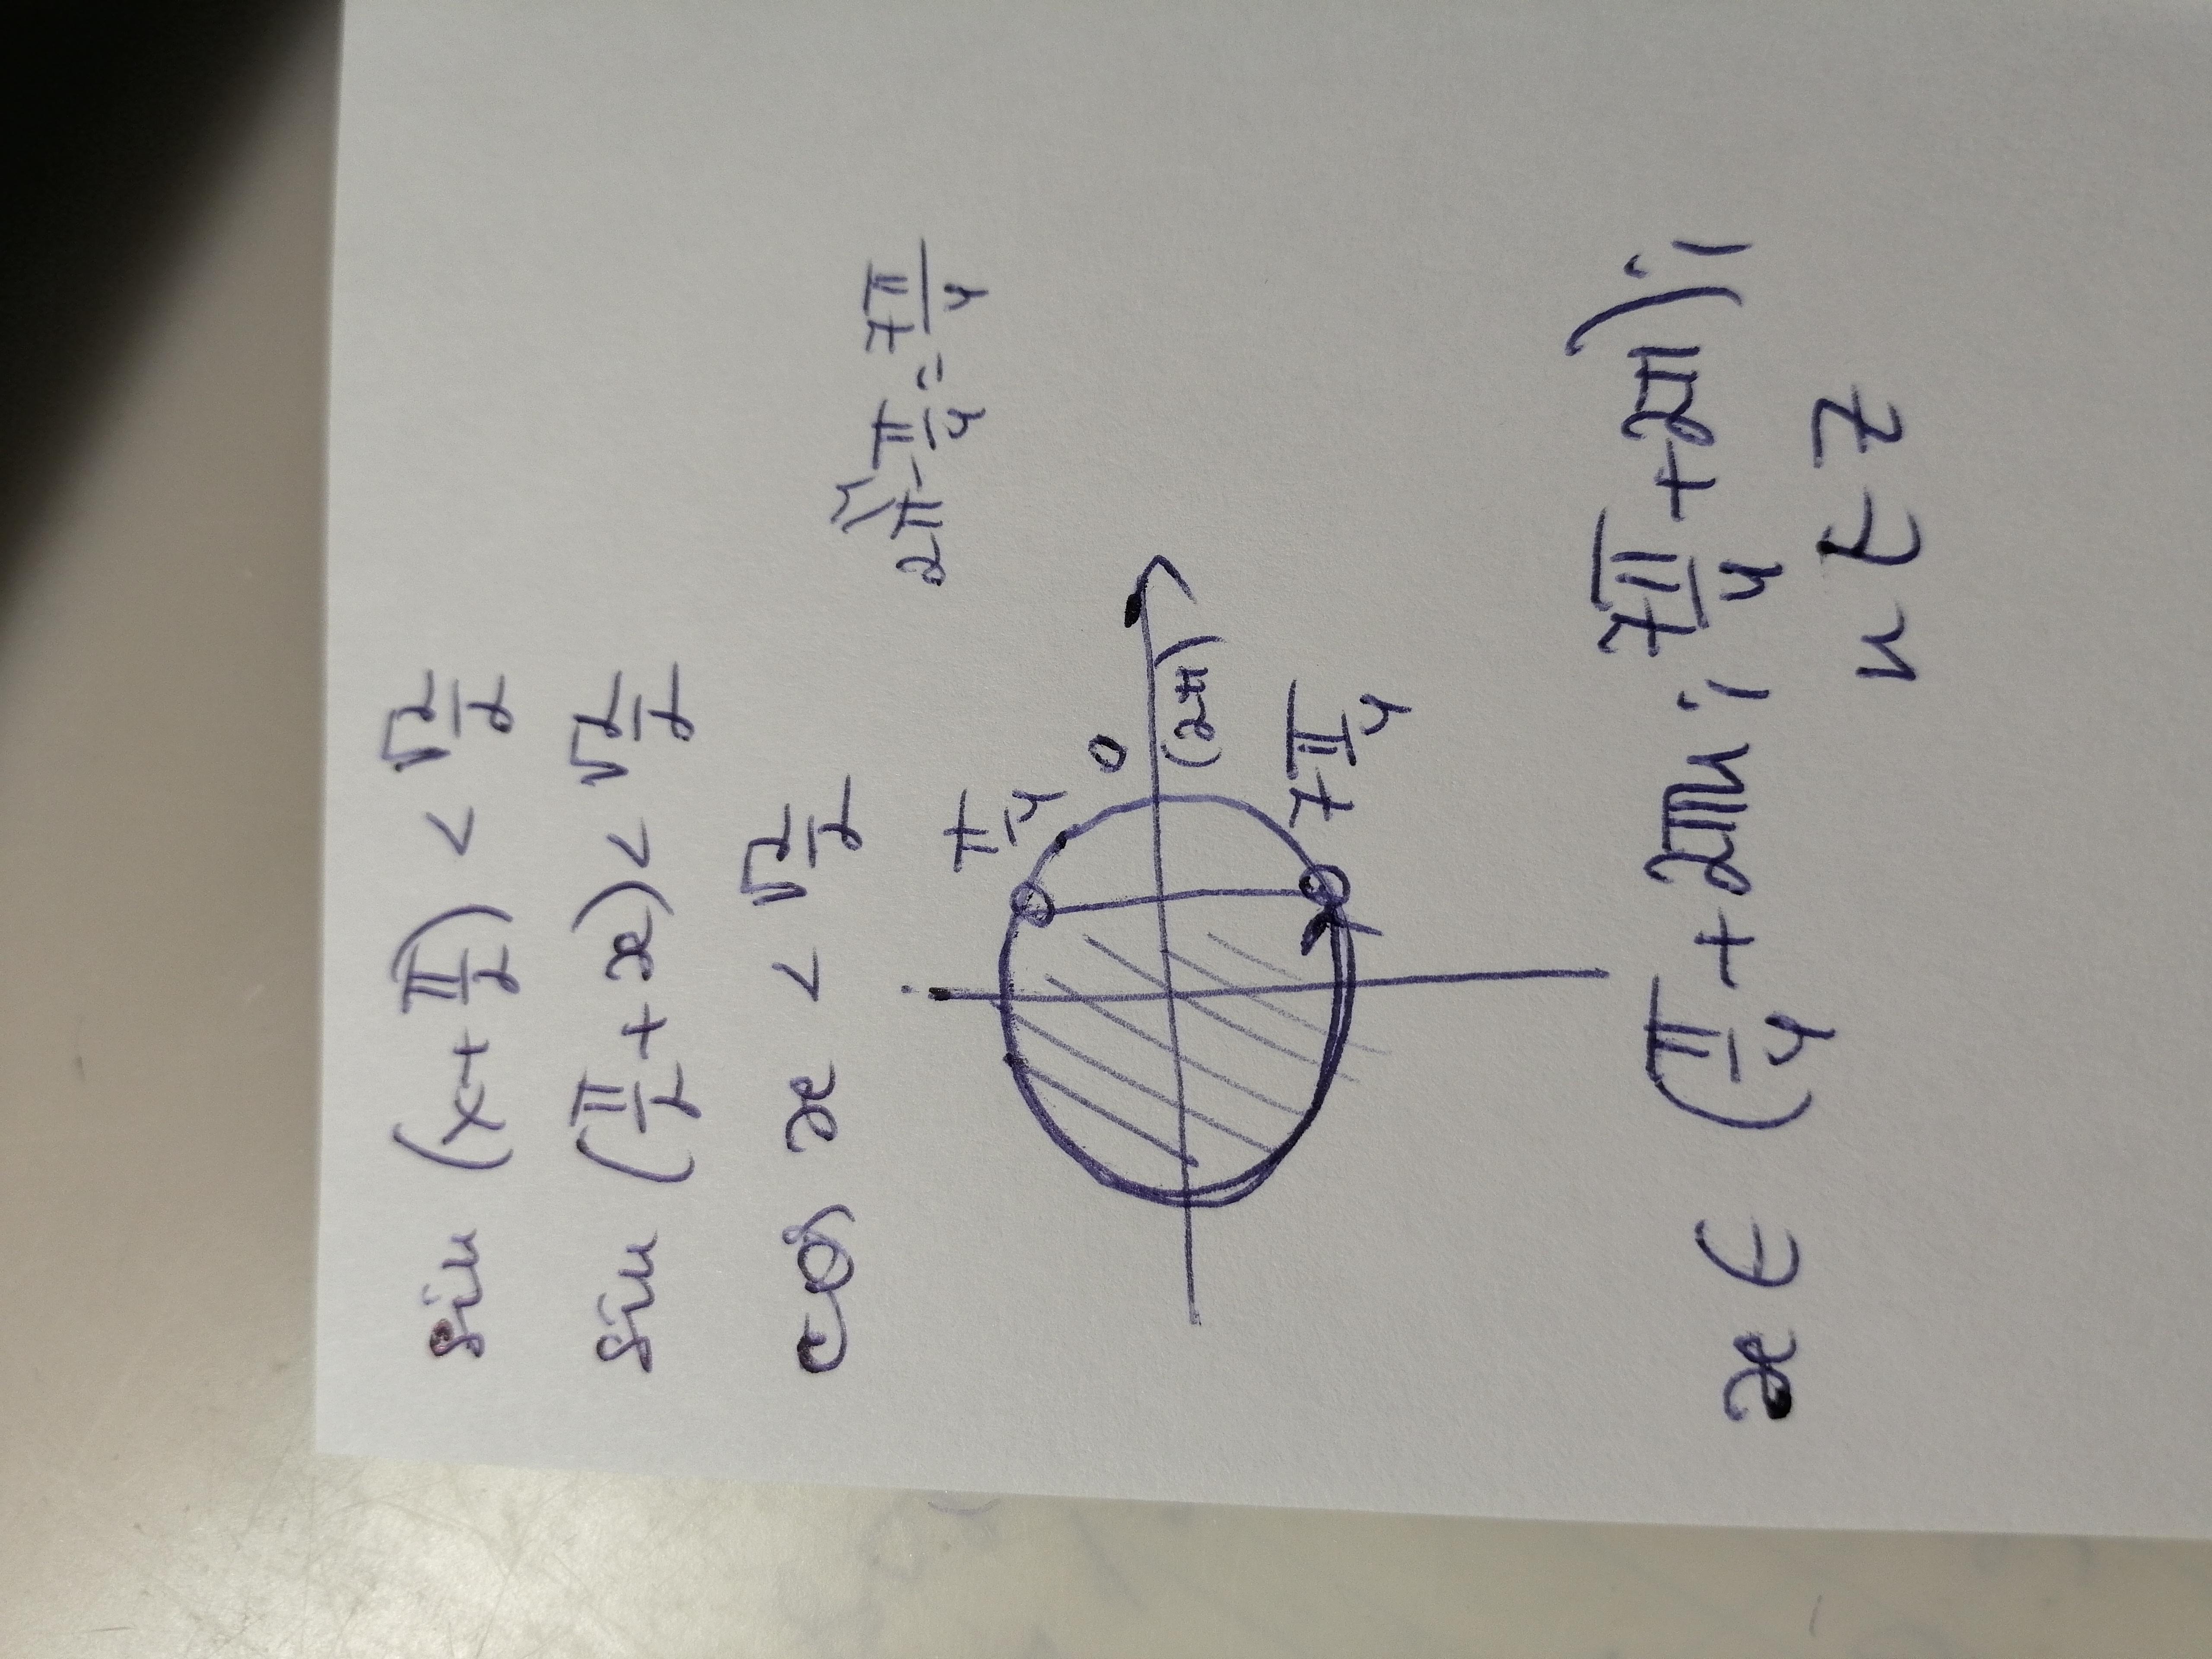 sin (x+π/2) < √2/2
sin (π/2+x) < √2/2
cos x < √2/2
2π-π/4=7π/4
π/4
0
(2π)
7π/4
x ∈ (π/4+2πn; 7π/4+2π);
n ∈ Z